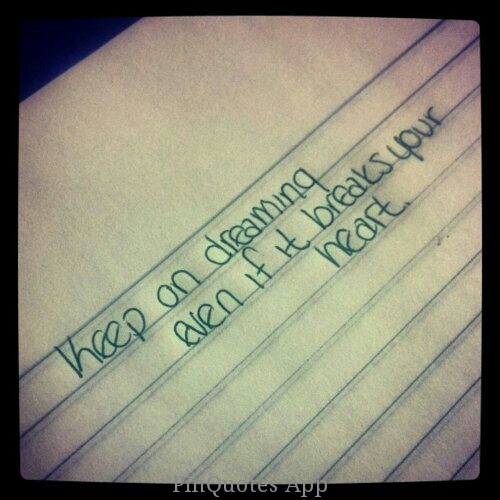 Keep on dreaming
even if it breaks your
heart.
PinQuotes App